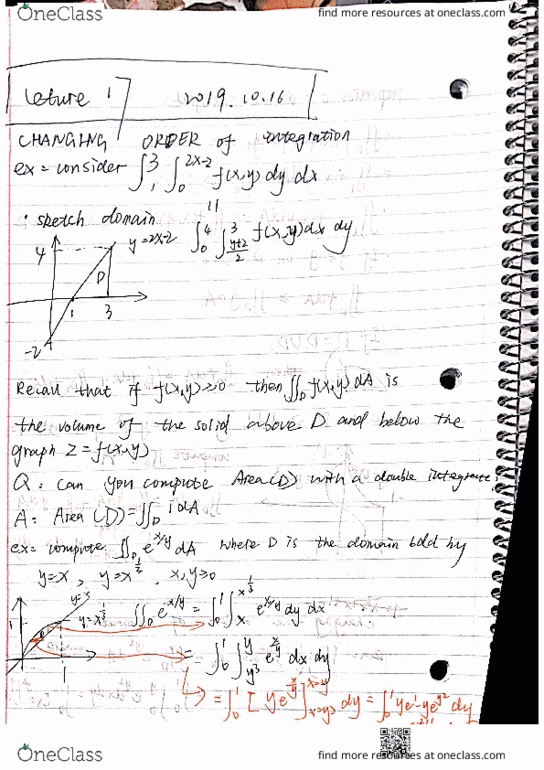 OneClass find more resources at oneclass.com
Lecture 1 2019.10.16
CHANGING ORDER of integration
ex = consider ∫₁³ ∫₀^{2x-2} f(x,y) dy dx
· sketch domain
y=2x-2 ∫₀⁴ ∫_{(y+2)/2}^3 f(x,y) dx dy
4
D
1 3
-2
Recall that if f(x,y) ≥ 0 then ∬_D f(x,y) dA is
the volume of the solid above D and below the
graph z = f(x,y)
Q: can you compute Area(D) with a double integrate
A: Area (D) = ∬_D 1 dA
ex = compute ∬_D e^{x/y} dA where D is the domain bdd by
y=x, y=x^{1/3}, x,y≥0
y=x
y=x^{1/3} ∬_D e^{x/y} = ∫₀¹ ∫_x^{x^{1/3}} e^{x/y} dy dx
1
= ∫₀¹ ∫_{y³}^y e^{x/y} dx dy
1
= ∫₀¹ [y e^{x/y}]_{x=y³}^{x=y} dy = ∫₀¹ ye¹-ye^{y²} dy
OneClass find more resources at oneclass.com